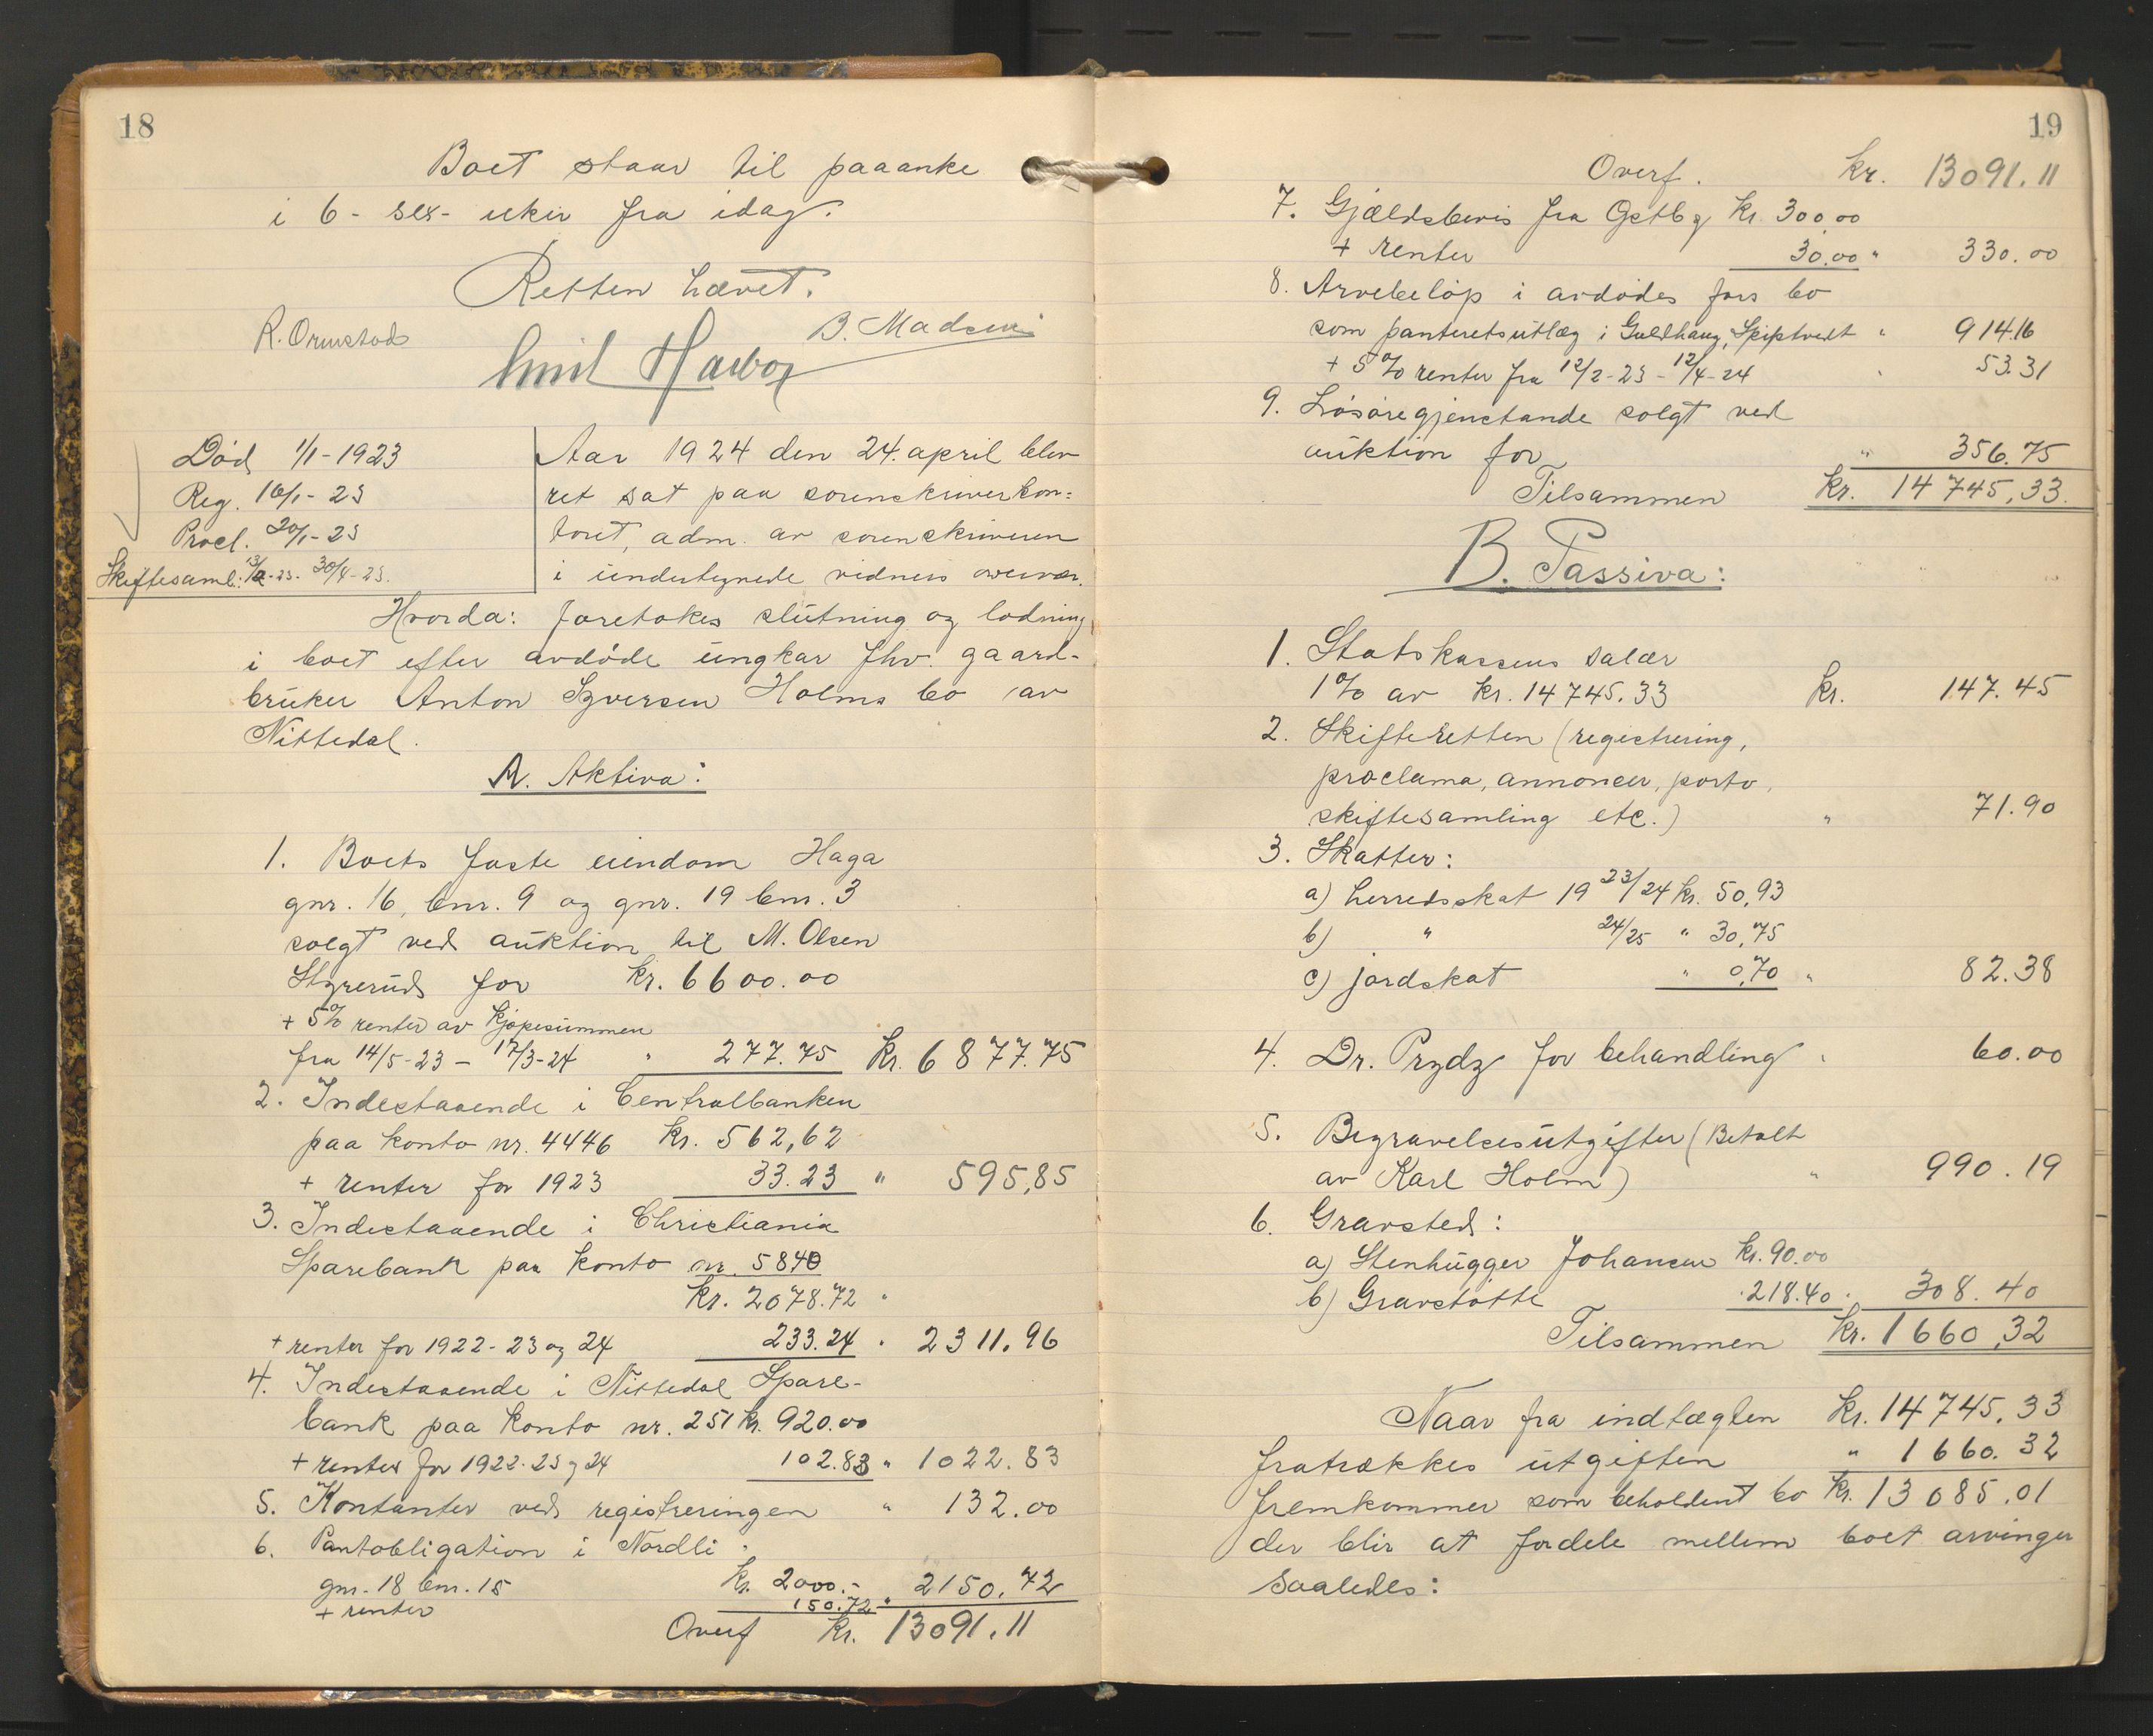 18
Boet staar til paaanke
i 6 - sex - uker fra idag.
Retten hævet.
R. Ormstad
B. Madsen
Emil
Død 1/1 - 1923
Reg. 16/1 - 23
Procl. 20/1 - 23
Skiftesaml: 13/2 - 23. 30/4 - 23.
Aar 1924 den 24. april blev
ret sat paa sorenskriverkon=
toret, adm. av sorenskriveren
i undertegnede vidners overvær.
Hvorda: foretokes slutning og lodning
i boet efter avdøde ungkar fhv. gaard-
bruker Anton Syversen Holms bo av
Nittedal.
A. Aktiva:
1. Boets faste eiendom Haga
gnr. 16, bnr. 9 og gnr. 19 bnr. 3
solgt ved auktion til M. Olsen
Styrerud for kr. 6600.00
+ 5% renter av kjøpesummen
fra 14/5 - 23 - 17/3 - 24 " 277.75 kr. 6877.75
2. Indestaaende i Centralbanken
paa konto nr. 4446 kr. 562,62
+ renter for 1923 33.23 " 595,85
3. Indestaaende i Christiania
Sparebank paa konto nr. 5840
kr. 2078.72 "
+ renter for 1922 - 23 og 24 233.24 " 2311.96
4. Indestaaende i Nittedal Spare-
bank paa konto nr. 251 kr. 920.00
+ renter for 1922-23 og 24 102.83 " 1022.83
5. Kontanter ved registreringen " 132.00
6. Pantobligation i Nordli
gnr. 18 bnr. 15 kr. 2000.- 2150.72
+ renter 150.72 "
Overf kr. 13091.11
19
Overf. kr. 13091.11
7. Gjældsbevis fra Østby kr. 300,00
+ renter 30.00 " 330.00
8. Arvebeløp i avdødes fars bo
som panteretsutlæg i Guldhaug, Spiptvedt " 914.16
+ 5% renter fra 12/2 - 23 - 12/4 - 24 " 53.31
9. Løsøregjenstande solgt ved
auktion for " 356.75
Tilsammen kr. 14745,33.
B. Passiva:
1. Statskassens salær
1% av kr. 14745.33 kr. 147.45
2. Skifteretten (registrering,
proclama, annoncer, porto,
skiftesamling etc.) " 71.90
3. Skatter:
a) herredsskat 1923/24 kr. 50,93
b) " 24/25 " 30,75
c) jordskat " 0,70 " 82.38
4. Dr. Prydz for behandling " 60.00
5. Begravelsesutgifter (Betalt
av Karl Holm) " 990.19
6. Gravsted:
a) Stenhugger Johansen kr. 90.00
b) Gravstøtte " 218.40 " 308.40
Tilsammen kr. 1660,32
Naar fra indtægten kr. 14745.33
fratrækkes utgiften " 1660.32
fremkommer som beholdent bo kr. 13085.01
der blir at fordele mellem boet arvinger
saaledes: